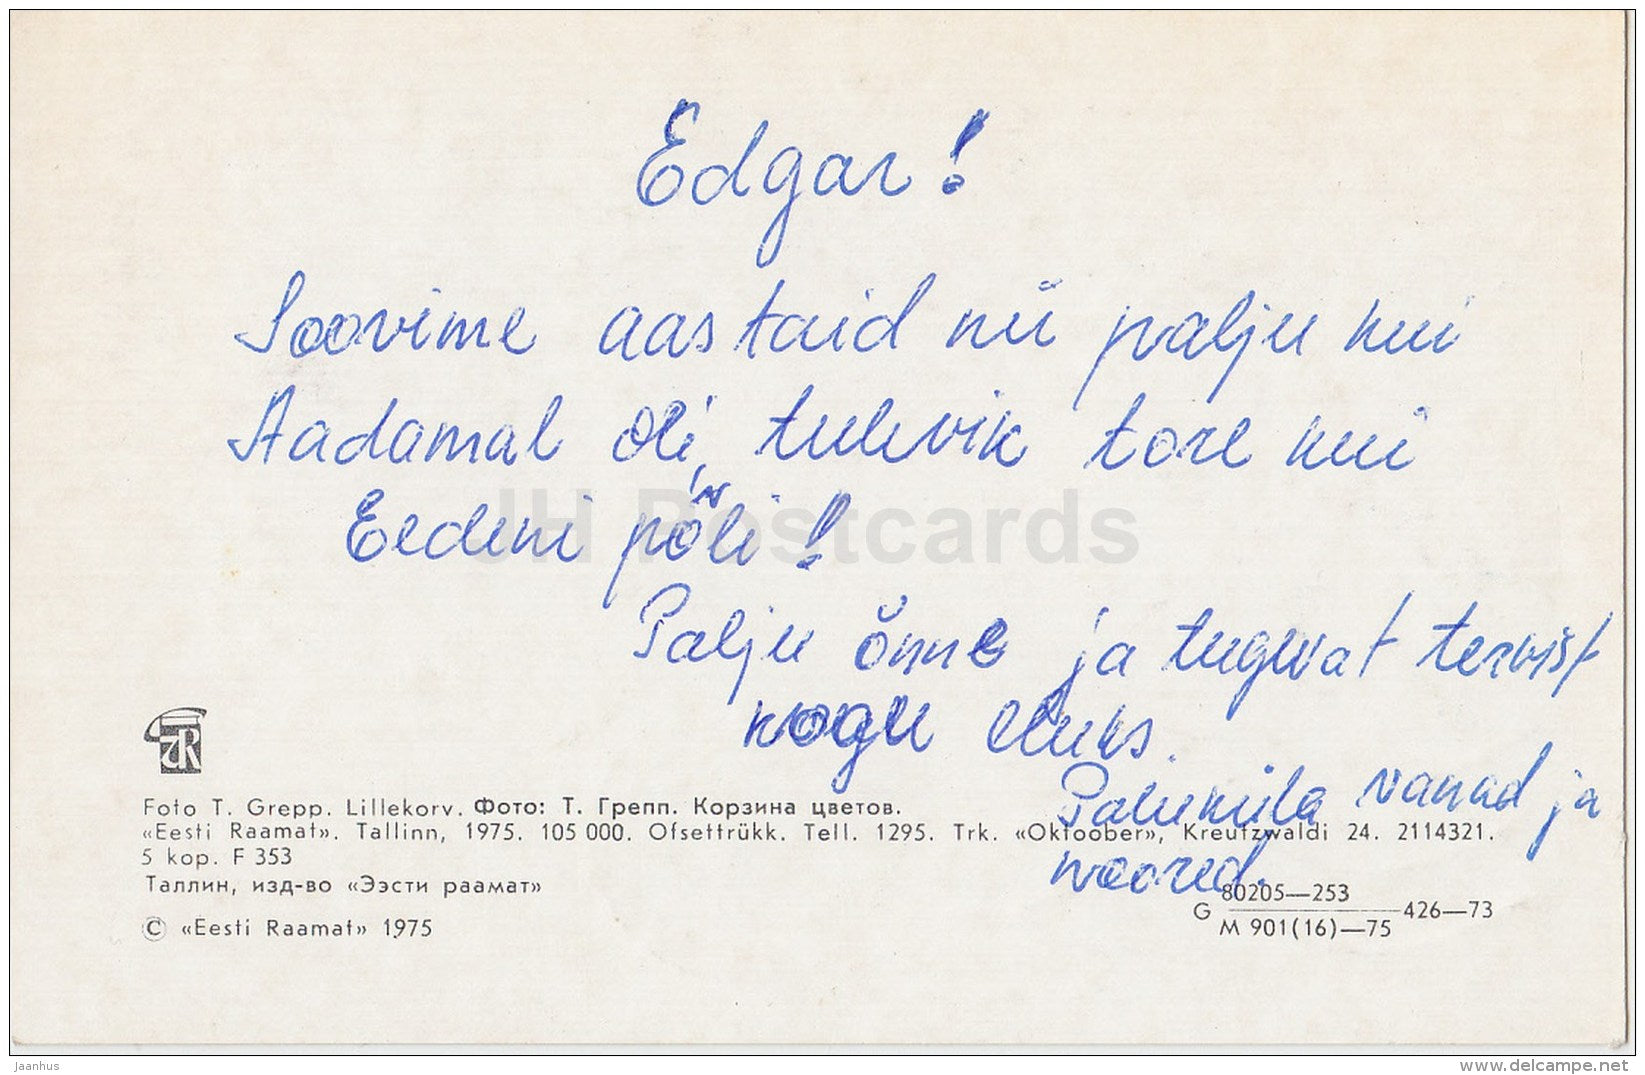 Edgar!
Soovime aastaid nii palju kui
Aadamal oli, tulevik tore kui
Eedeni põli!
Palju õnne ja tugevat tervist
kogu eluks.
Paluküla vanad ja
noored.
JH Postcards
Foto T. Grepp. Lillekorv. Фото: Т. Грепп. Корзина цветов.
«Eesti Raamat». Tallinn, 1975. 105 000. Ofsettrükk. Tell. 1295. Trk. «Oktoober», Kreutzwaldi 24. 2114321.
5 kop. F 353
Таллин, изд-во «Ээсти раамат»
© «Eesti Raamat» 1975
G 80205—253
M 901(16)—75 426—73
jaanhus
www.delcampe.net